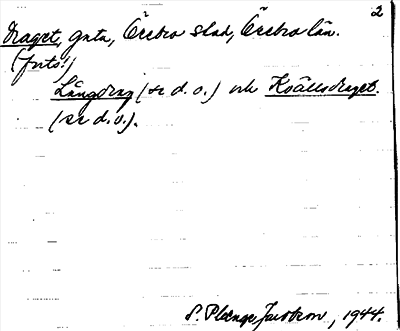 2
Draget, gata, Örebro stad, Örebro län.
(forts.)
Långdrag (se d. o.) och Kvällsdraget.
(se d. o.).
S. Plænge Jacobson, 1944.